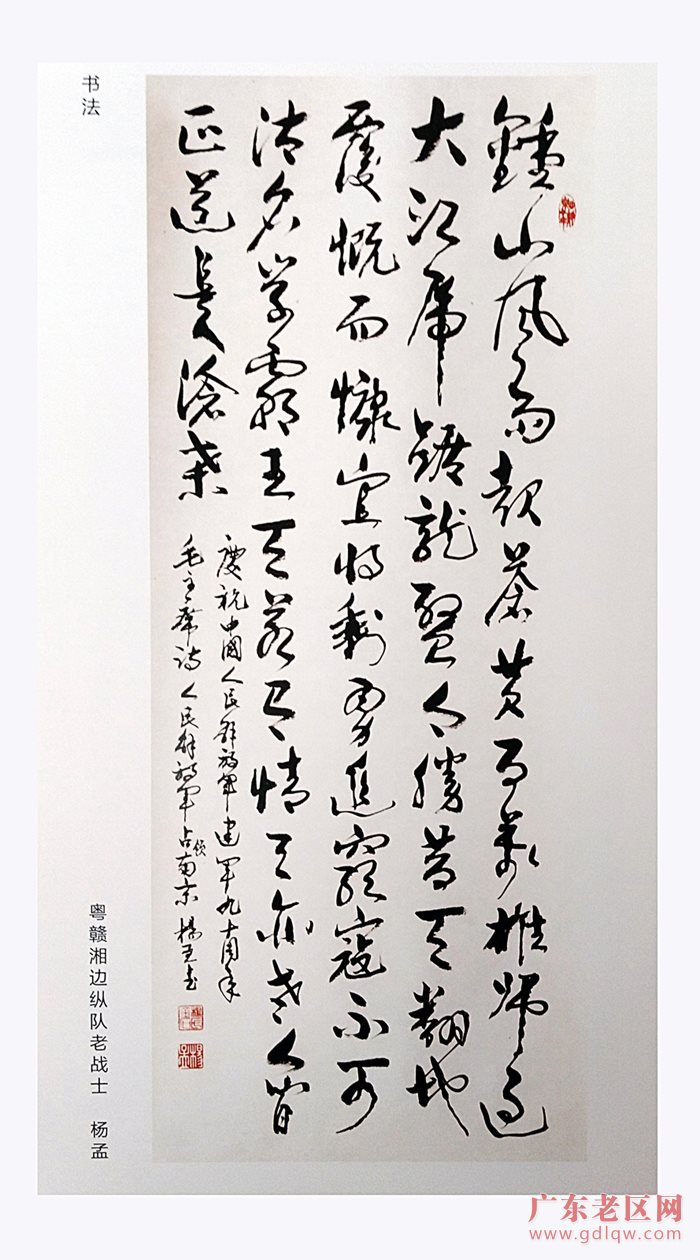 书法
鍾山風雨起蒼黄百萬雄師過
大江虎踞龍盤今勝昔天翻地
覆慨而慷宜將剩勇追窮寇不可
沽名學霸王天若有情天亦老人間
正道是滄桑
慶祝中國人民解放軍建軍九十周年
毛主席詩人民解放軍占領南京 楊孟書
粤赣湘边纵队老战士 杨孟
广东老区网
www.gdlqw.com